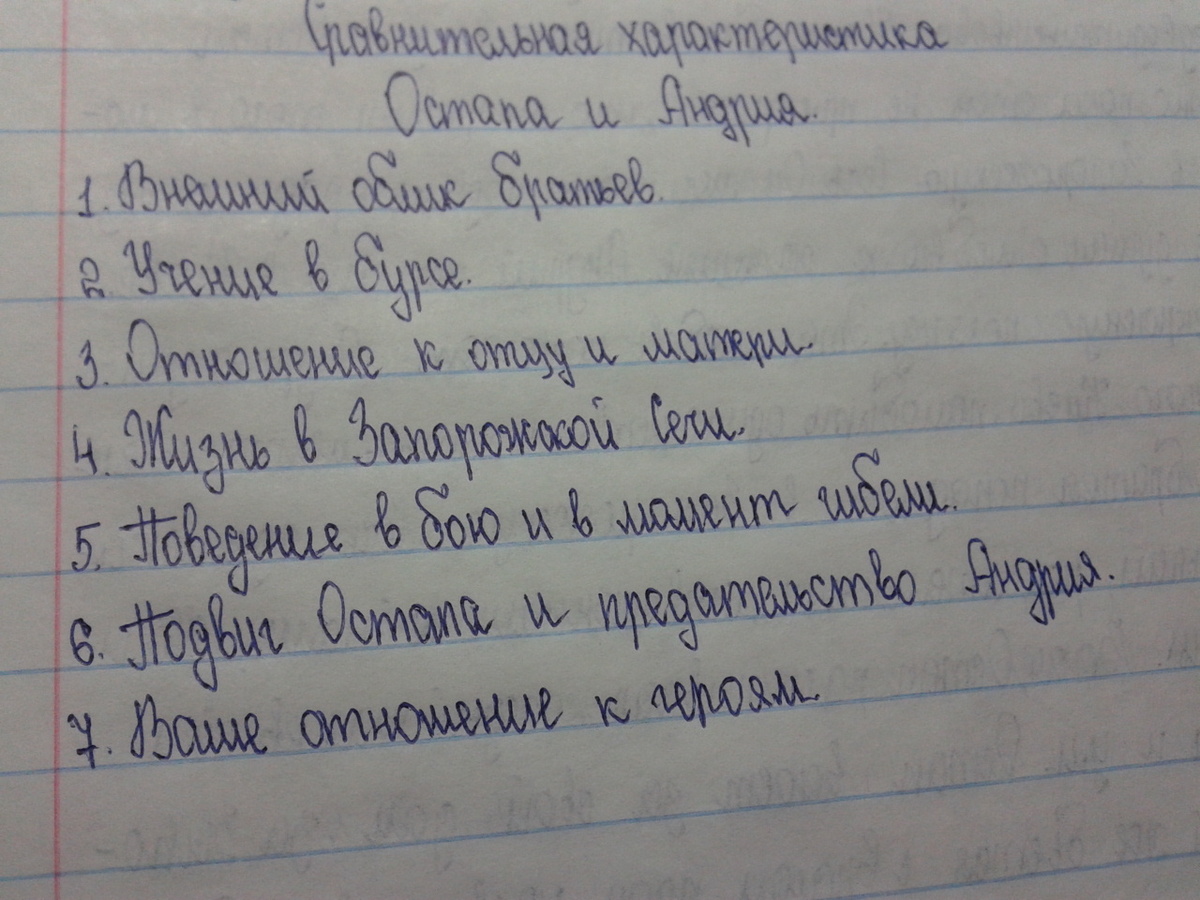 Сравнительная характеристика
Остапа и Андрия.
1. Внешний облик братьев.
2. Учение в бурсе.
3. Отношение к отцу и матери.
4. Жизнь в Запорожской Сечи.
5. Поведение в бою и в момент гибели.
6. Подвиг Остапа и предательство Андрия.
7. Ваше отношение к героям.